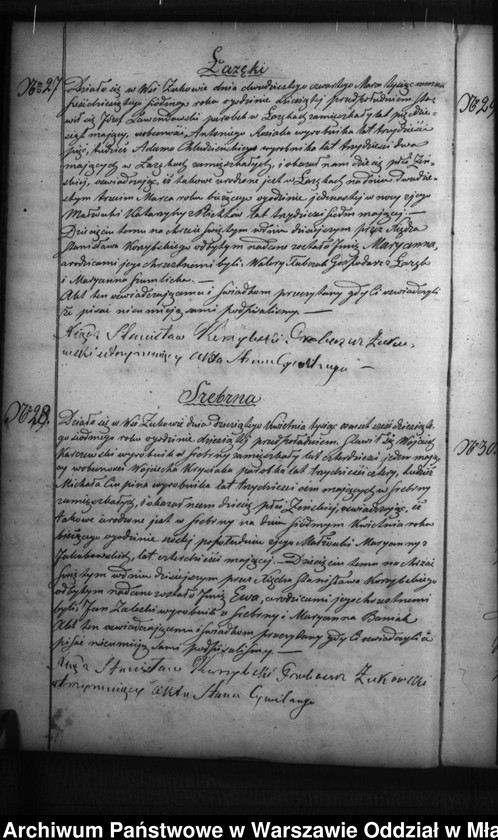 Łazęki
No 27 Działo się w Wsi Żukowie dnia dwudziestego czwartego Marca tysiąc osmset
sześćdziesiątego siódmego roku o godzinie dziesiątej przedpołudniem, Sta-
wił się Józef parobek w Łazękach zamieszkały lat pięćdzie-
siąt mający, w obecności Antoniego Kasiaka wyrobnika lat trzydzieści
pięć, tudzież Adama wyrobnika lat trzydzieści dwa
mających w Łazękach zamieszkałych, i okazał nam dziecię płci Żeń-
skiej, oświadczając, iż takowe urodzone jest w Łazękach na dniu dwudzie-
stym trzecim Marca roku bieżącego o godzinie jedenastej w nocy z jego
Małżonki Katarzyny z lat trzydzieści siedm mającej.—
Dziecięciu temu na chrzcie świętym w dniu dzisiejszym przez Księdza
Stanisława Korybskiego odbytym nadane zostało Imię Maryanna,
a rodzicami jego chrzestnemi byli: Walery Gospodarz z Łazęk
i Maryanna .—
Akt ten oświadczającemu i świadkom przeczytany gdy Ci oświadczyli
że pisać nieumieją sami podpisaliśmy.—
Ksiądz Stanisław Korybski Proboszcz Żuko-
wski utrzymujący Akta Stanu Cywilnego —
Srebrna
No 28. Działo się w Wsi Żukowie dnia dziewiątego Kwietnia tysiąc osmset sześćdziesiąte-
go siódmego roku o godzinie dziesiątej przedpołudniem. Stawił się Wojciech
wyrobnik w Srebrny zamieszkały lat czterdzieści jeden mają-
cy w obecności Wojciecha Krysiaka parobka lat trzydzieści cztery, tudzież
Michała wyrobnika lat trzydzieści ośm mających w Srebrny
zamieszkałych, i okazał nam dziecię płci Żeńskiej, oświadczając, iż
takowe urodzone jest w Srebrny na dniu siódmym Kwietnia roku
bieżącego o godzinie popołudniu z jego Małżonki Maryanny z
Jakubowskich, lat czterdzieści mającej.— Dziecięciu temu na chrzcie
świętym w dniu dzisiejszym przez Księdza Stanisława Korybskiego
odbytym nadane zostało Imię Ewa, a rodzicami jego chrzestnemi
byli: Jan Zalecki wyrobnik z Srebrny i Maryanna Baniak
Akt ten oświadczającemu i świadkom przeczytany gdy Ci oświadczyli iż
pisać nieumieją sami podpisaliśmy.—
Ksiądz Stanisław Korybski Proboszcz Żukowski
utrzymujący Akta Stanu Cywilnego
No 29
No 30.
Archiwum Państwowe w Warszawie Oddział w Mła